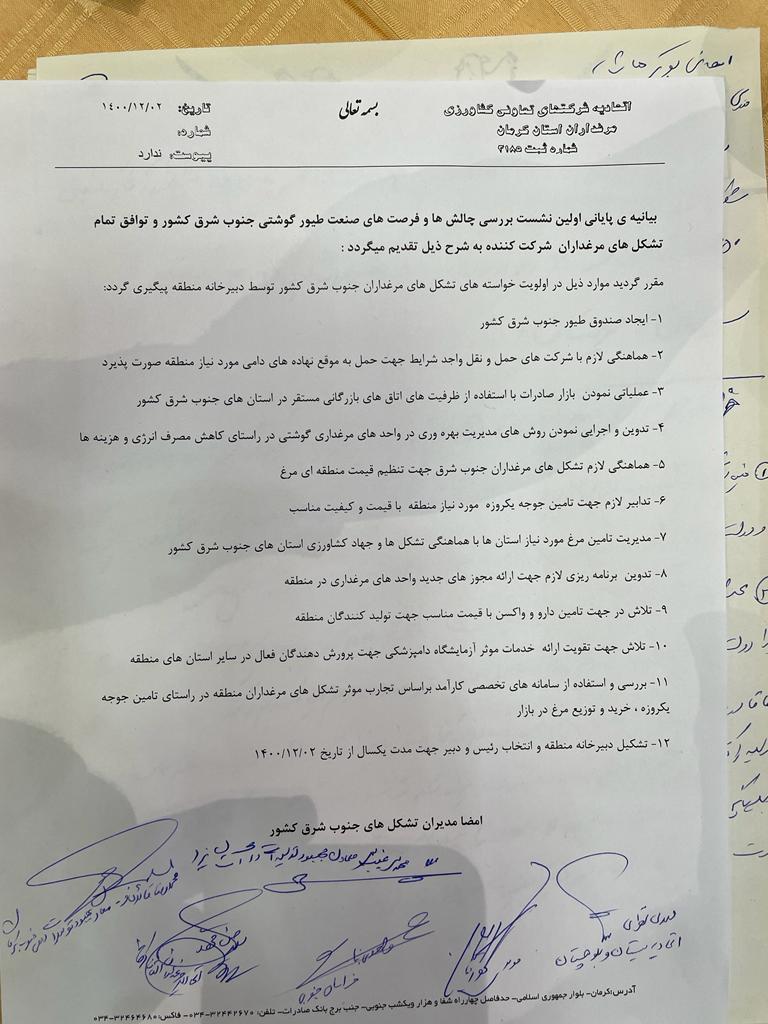 بسمه تعالی
اتحادیه شرکتهای تعاونی کشاورزی
مرغداران استان کرمان
شماره ثبت ۴۱۸۵
تاریخ: ۱۴۰۰/۱۲/۰۲
شماره:
پیوست: ندارد
بیانیه ی پایانی اولین نشست بررسی چالش ها و فرصت های صنعت طیور گوشتی جنوب شرق کشور و توافق تمام
تشکل های مرغداران شرکت کننده به شرح ذیل تقدیم میگردد :
مقرر گردید موارد ذیل در اولویت خواسته های تشکل های مرغداران جنوب شرق کشور توسط دبیرخانه منطقه پیگیری گردد:
۱- ایجاد صندوق طیور جنوب شرق کشور
۲- هماهنگی لازم با شرکت های حمل و نقل واجد شرایط جهت حمل به موقع نهاده های دامی مورد نیاز منطقه صورت پذیرد
۳- عملیاتی نمودن بازار صادرات با استفاده از ظرفیت های اتاق های بازرگانی مستقر در استان های جنوب شرق کشور
۴- تدوین و اجرایی نمودن روش های مدیریت بهره وری در واحد های مرغداری گوشتی در راستای کاهش مصرف انرژی و هزینه ها
۵- هماهنگی لازم تشکل های مرغداران جنوب شرق جهت تنظیم قیمت منطقه ای مرغ
۶- تدابیر لازم جهت تامین جوجه یکروزه مورد نیاز منطقه با قیمت و کیفیت مناسب
۷- مدیریت تامین مرغ مورد نیاز استان ها با هماهنگی تشکل ها و جهاد کشاورزی استان های جنوب شرق کشور
۸- تدوین برنامه ریزی لازم جهت ارائه مجوز های جدید واحد های مرغداری در منطقه
۹- تلاش در جهت تامین دارو و واکسن با قیمت مناسب جهت تولید کنندگان منطقه
۱۰- تلاش جهت تقویت ارائه خدمات موثر آزمایشگاه دامپزشکی جهت پرورش دهندگان فعال در سایر استان های منطقه
۱۱- بررسی و استفاده از سامانه های تخصصی کارآمد براساس تجارب موثر تشکل های مرغداران منطقه در راستای تامین جوجه
یکروزه ، خرید و توزیع مرغ در بازار
۱۲- تشکیل دبیرخانه منطقه و انتخاب رئیس و دبیر جهت مدت یکسال از تاریخ ۱۴۰۰/۱۲/۰۲
امضا مدیران تشکل های جنوب شرق کشور
اتحادیه سیستان و بلوچستان
خراسان جنوبی
آدرس:کرمان- بلوار جمهوری اسلامی- حدفاصل چهارراه شفا و هزار ویکشب جنوبی- جنب برج بانک صادرات- تلفن: ۳۲۴۴۲۶۷۰-۰۳۴ - فاکس:۳۲۴۶۴۶۸۰-۰۳۴